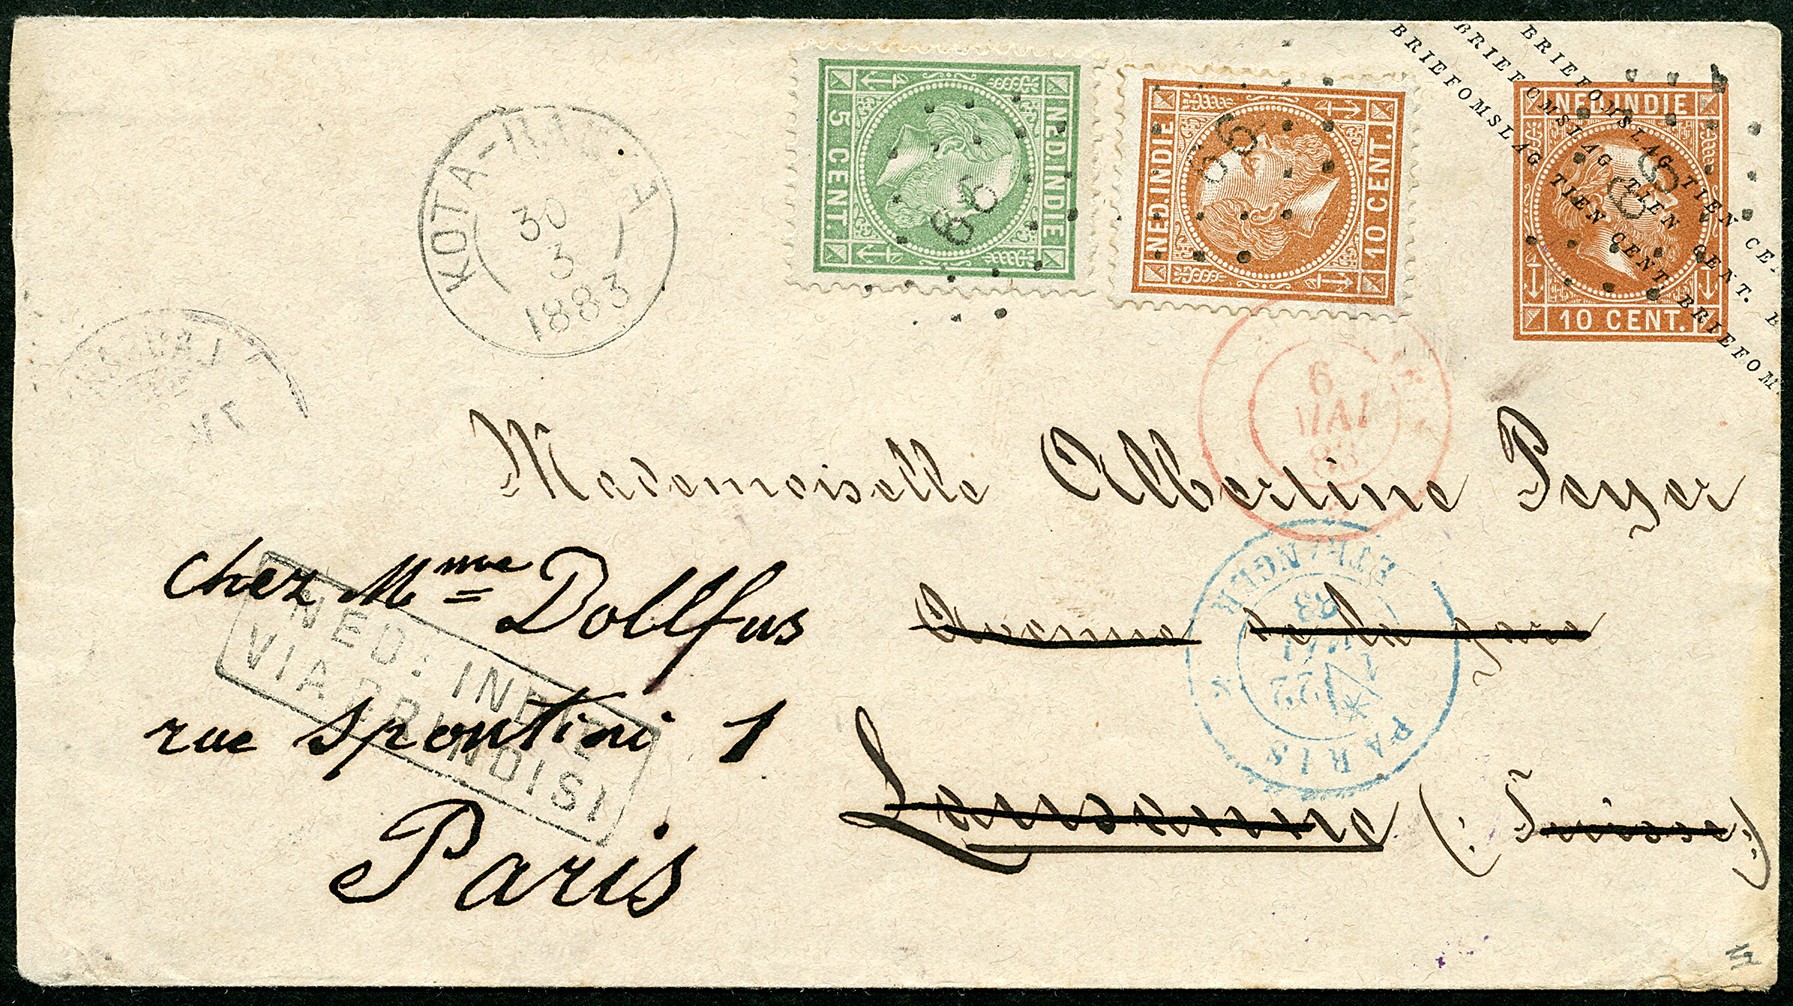 BRIEFOMSLAG TIEN CENT. BRIEFOM
BRIEFOMSLAG TIEN CENT. B
BRIEFOMSLAG TIEN CE
NED. INDIE
5 CENT.
66
NED. INDIE
10 CENT.
66
NED. INDIE
10 CENT.
KOTA-RADJA
30
3
1883
6
MAI
83
Mademoiselle Albertine Peyer
chez Mme Dollfus
Avenue de la gare
NED: INDIE
VIA BRINDISI
rue Spontini 1
Lausanne (: Suisse :)
Paris
PARIS
ETRANGER
22
83